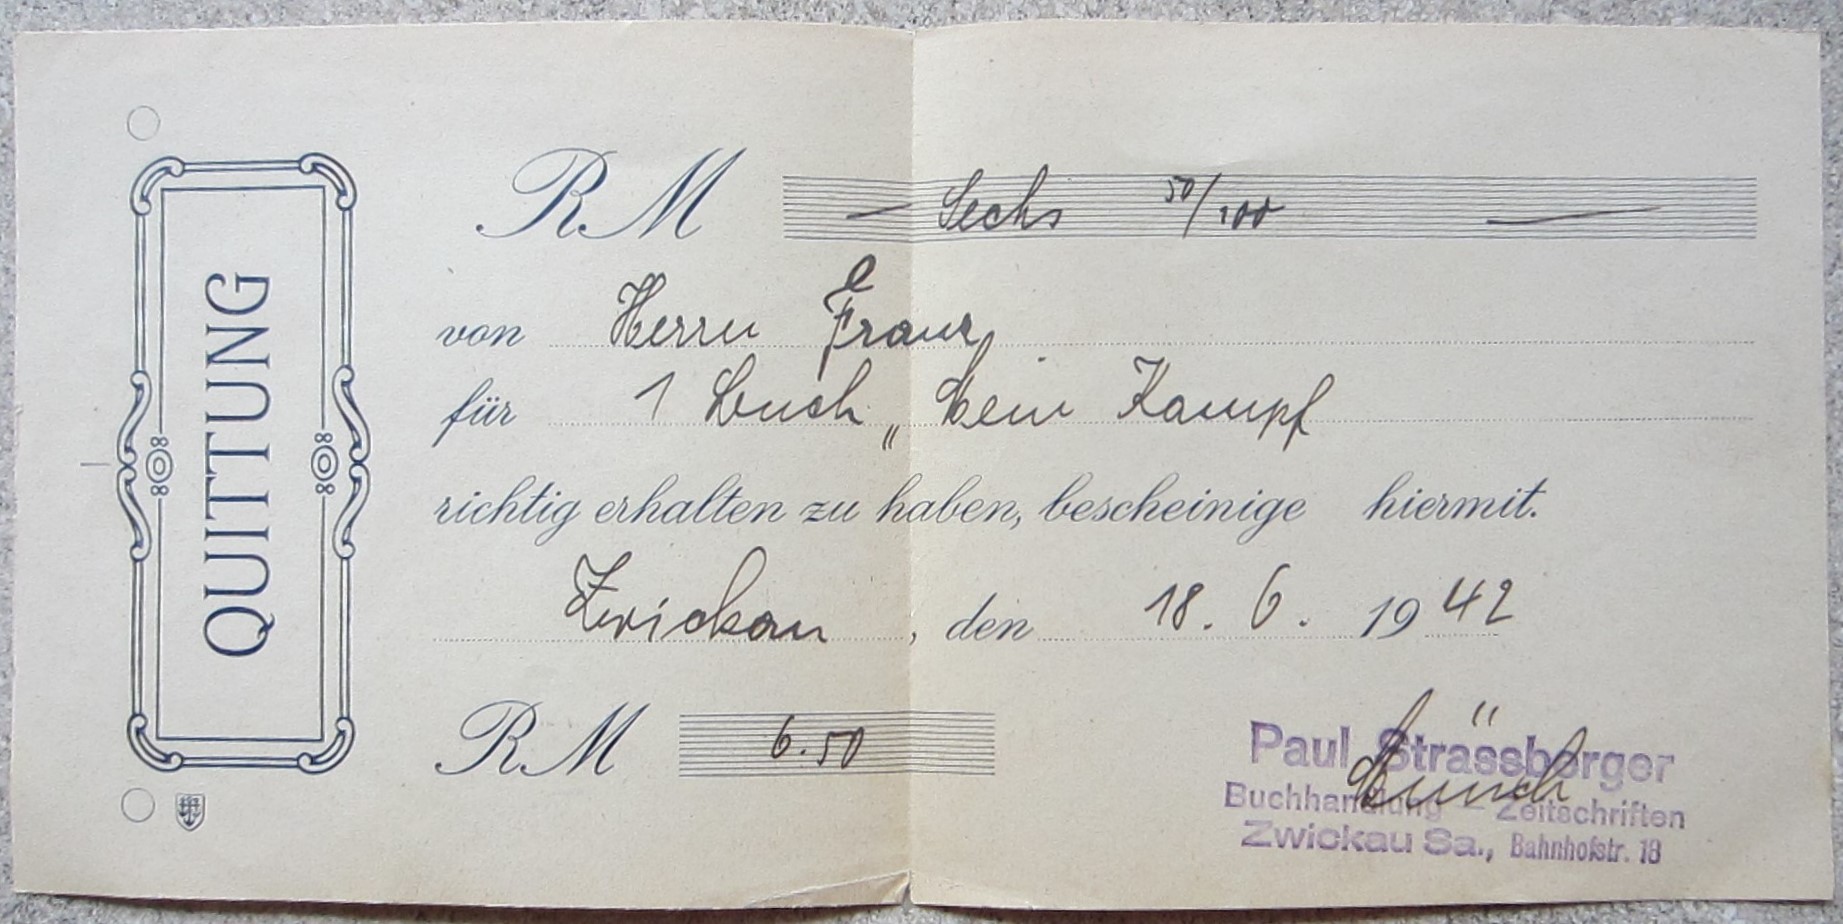 QUITTUNG
RM — Sechs 50/100 —
von Herrn Franz
für 1 Buch „Mein Kampf
richtig erhalten zu haben, bescheinige hiermit.
Zwickau, den 18. 6. 1942
RM 6.50
Paul Strässberger
Buchhandlung — Zeitschriften
Zwickau Sa., Bahnhofstr. 18